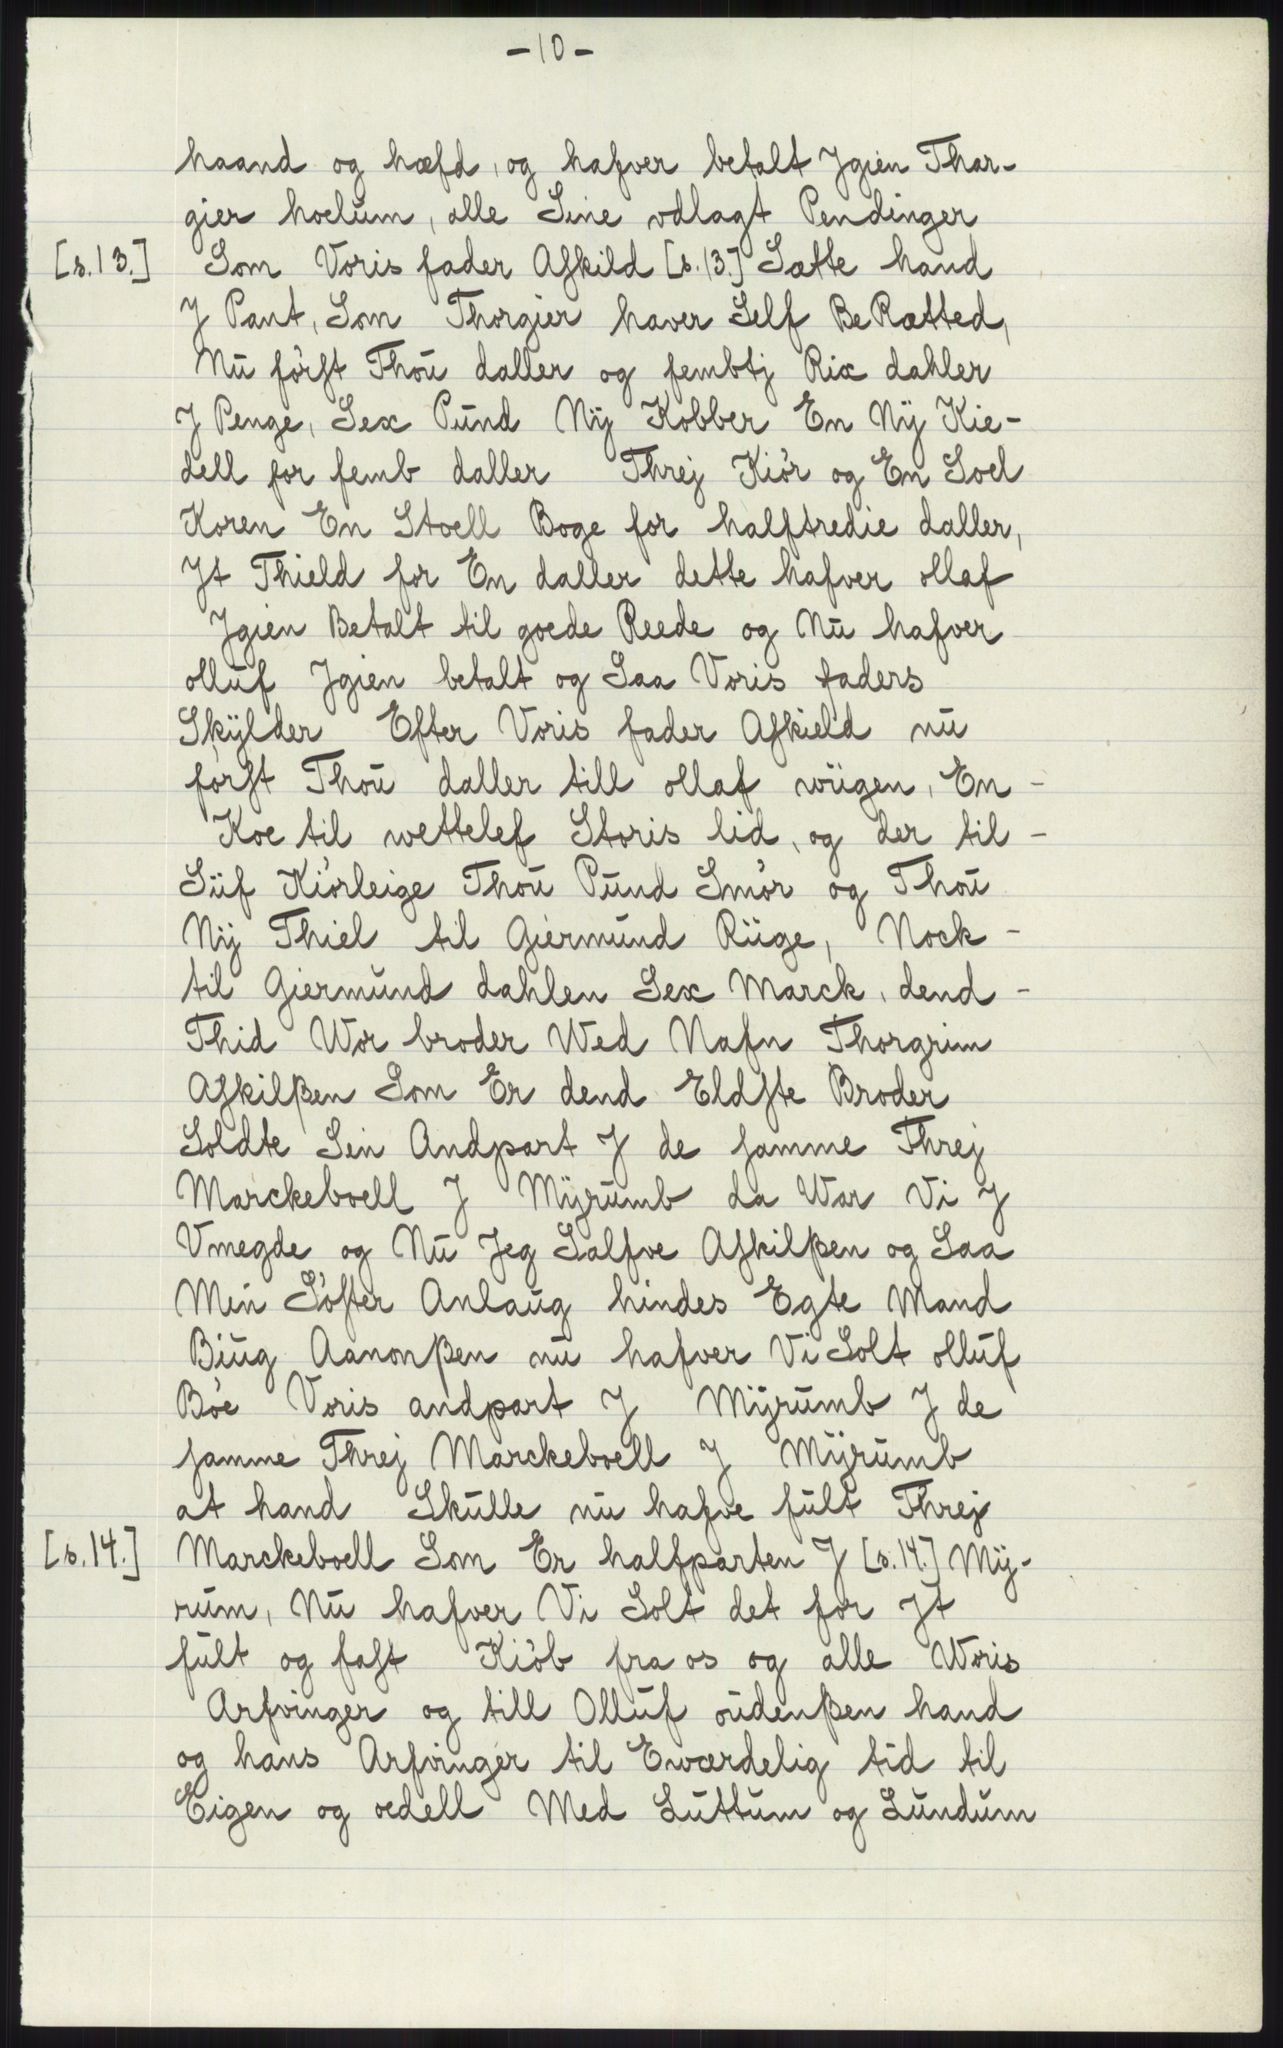 -10-
haand og hæfd, og hafver betalt Jgien Thor-
gier hoelum, alle Sine vdlagt Pendinger
[s.13.] Som Voris fader Aſkild [s.13.] Sætte hand
J Pant, Som Thorgier haver Self BeRætted,
Nu förſt Thou daller og fembtj Rix dahler
J Penge, Sex Pund Nÿ Kobber En Nÿ Kie-
dell for femb daller Threj Kiör og En Soel
Koren En Stoell Boge for halftredie daller,
Jt Thield for En daller dette hafver ollaf
Jgien Betalt til goede Reede og Nu hafver
olluf Jgien betalt og Saa Voris faders
Skÿlder Efter Voris fader Aſkield nu
förſt Thou daller till ollaf wiigen, En -
Koe til wettelef Storis lid, og der til -
Siif Kiörleige Thou Pund Smör og Thou
Nÿ Thiel til Giermund Riige, Nock -
til Giermund dahlen Sex Marck, dend -
Thid Wor broder Wed Nafn Thorgrim
Aſkilßen Som Er dend Eldſte Broder
Soldte Sin Andpart J de ſamme Threj
Marckeboell J Mÿrumb da War Vi J
Vmegde og Nu Jeg Salfve Aſkilßen og Saa
Min Söſter Anlaug hindes Egte Mand
Biug Aanonßen nu hafver Vi Solt olluf
Böe Voris andpart J Mÿrumb J de
ſamme Threj Marckeboell J Mÿrumb
at hand Skulle nu hafve fult Threj
[s.14.] Marckeboell Som Er halfparten J [s.14.] Mÿ-
rum, Nu hafver Vi Solt det for Jt
fult og faſt Kiöb fra os og alle Woris
Arfvinger og till Olluf oudenßen hand
og hans Arfvinger til Ewærdelig tid til
Eigen og oedell Med Luttum og Lundum